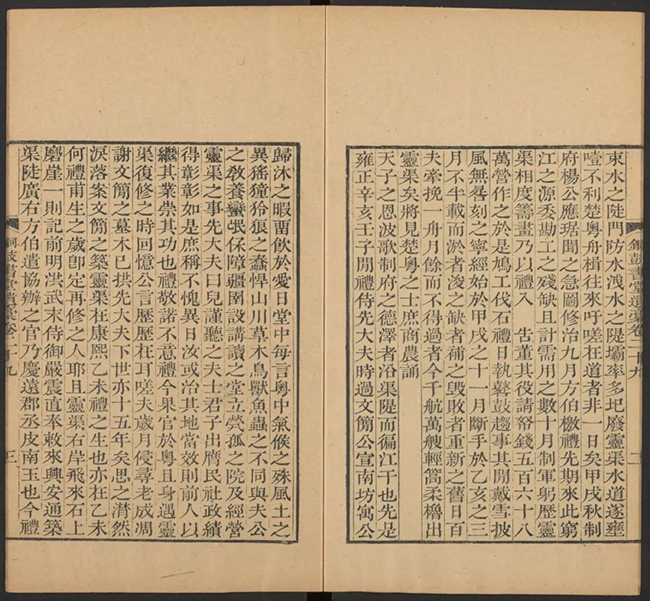 東水之陡門防水洩水之隄壩率多圮廢靈渠水道遂壅
噎不利楚粵舟楫往來吁嗟在道者非一日矣甲戌秋制
府楊公應琚聞之急圖修治九月方伯檄禮先期來此窮
江之源委勘工之殘缺且計需用之數十月制軍躬歷靈
渠相度籌畫乃以禮入　告董其役請帑錢五百六十八
萬營作之於是鳩工伐石禮日執鼛鼓趨事其間戴雪披
風無晷刻之寧經始於甲戌之十一月斷手於乙亥之三
月不半載而淤者浚之缺者補之毀敗者重新之舊日百
夫牽挽一舟月餘而不得過者今千航萬艘輕篙柔櫓出
靈渠矣將見楚粵之士庶商農誦
天子之恩波歌制府之德澤者沿渠隄而徧江干也先是
雍正辛亥壬子間禮侍先大夫時過文簡公宣南坊寓公
銅鼓書堂遺稾卷二十九　二
歸沐之暇畱飲於愛日堂中每言粵中氣候之殊風土之
異猺獞狑狼之蠢悍山川草木鳥獸魚蟲之不同與夫公
之敎養蠻氓保障疆圉設講讀之堂立煢孤之院及經營
靈渠之事先大夫曰兒謹聽之夫士君子出膺民社政績
得彰彰如是庶稱不愧異日汝或治其地當效則前人以
繼其業崇其功也禮敬諾不意禮今果官於粵且身遇靈
渠復修之時回憶公言歷歷在耳嗟夫歲月侵尋老成凋
謝文簡之墓木已拱先大夫下世亦十五年矣思之潸然
淚落案文簡之築靈渠在康熙乙未禮之生也亦在乙未
何禮甫生之歲卽定再修之人耶且靈渠右岸飛來石上
磨崖一則記前明洪武末侍御嚴震直奉敕來興安通築
渠陡廣右方伯遺協辦之官乃慶遠郡丞皮南玉也今禮
銅鼓書堂遺稾卷二十九　三